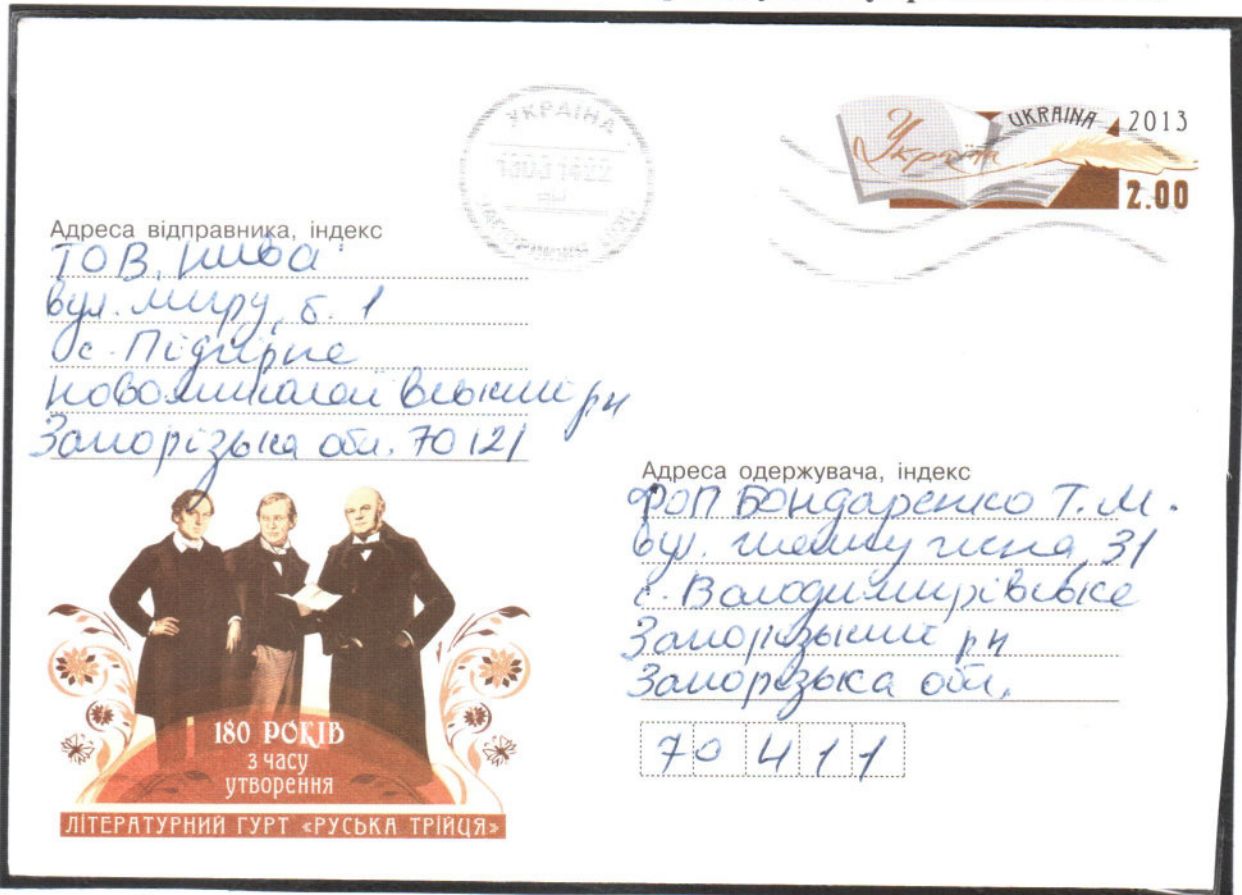 УКРАЇНА
Україна
UKRAINA 2013
2.00
Адреса відправника, індекс
ТОВ "Нива"
вул. Миру, б. 1
с. Підгірне
Новомиколаївський рн
Запорізька обл. 70121
Адреса одержувача, індекс
ФОП Бондаренко Т.М.
вул. 31
с. Володимирівське
Запорізький рн
Запорізька обл.
70411
180 РОКІВ
з часу
утворення
ЛІТЕРАТУРНИЙ ГУРТ «РУСЬКА ТРІЙЦЯ»